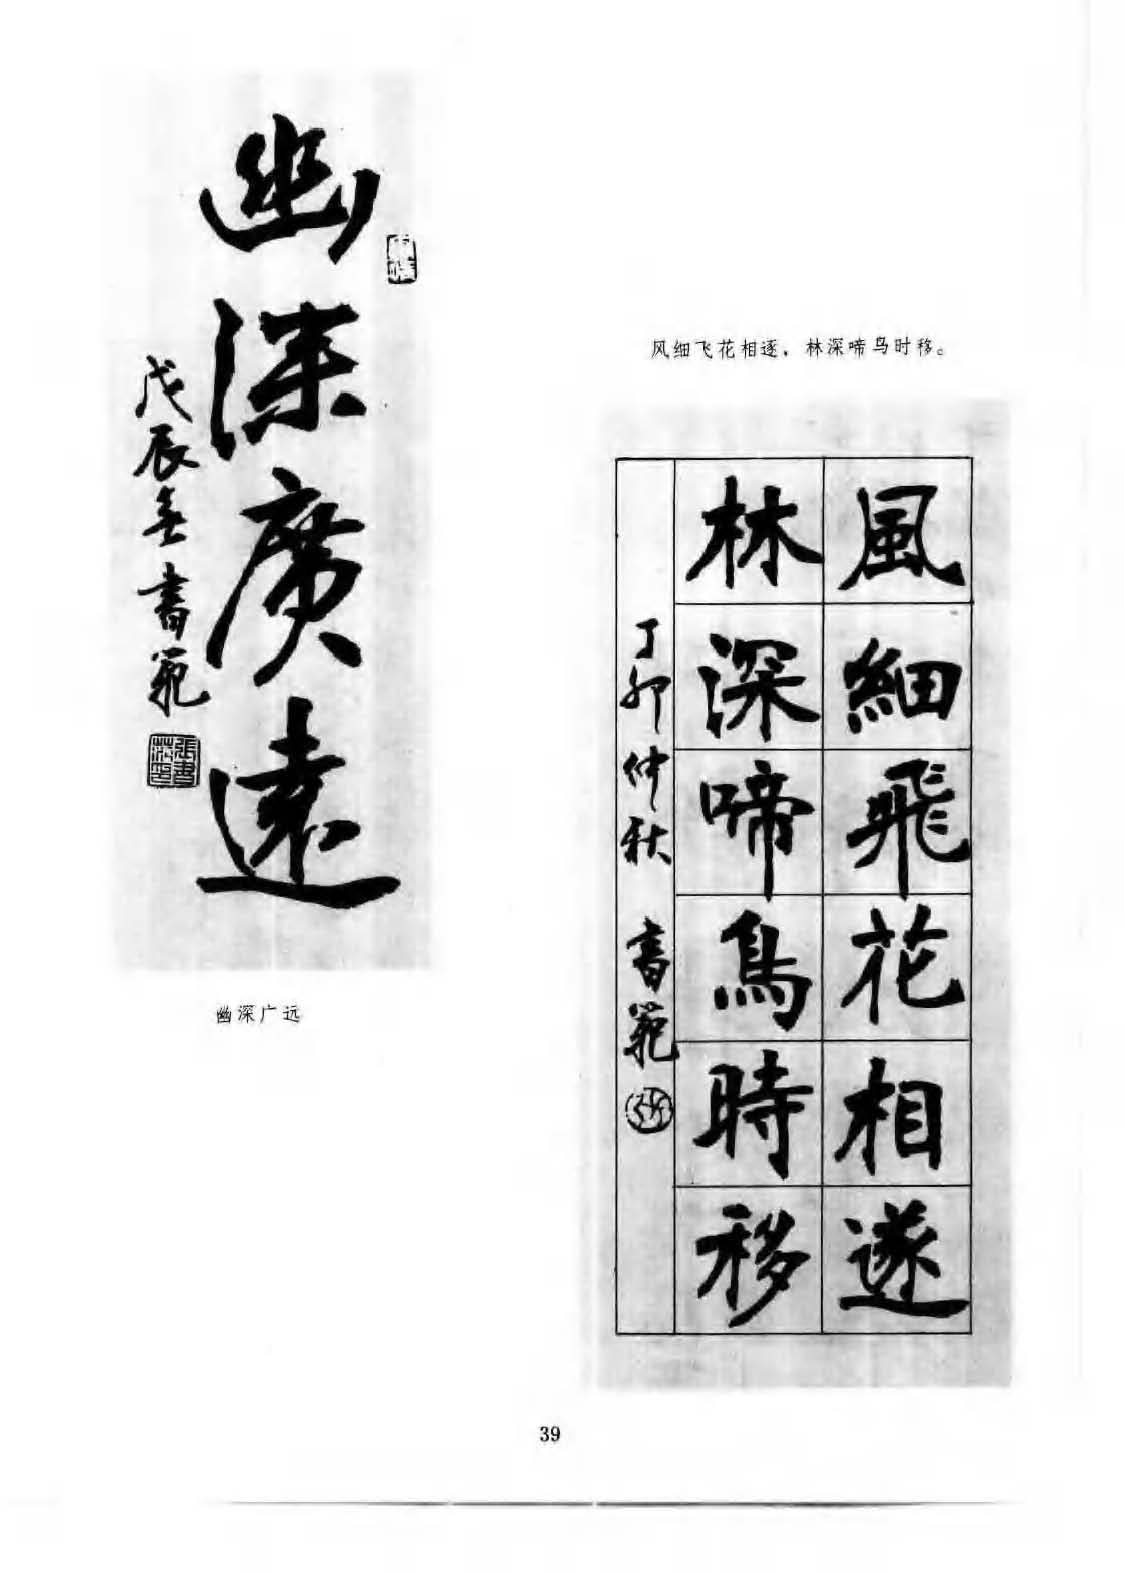 幽深廣遠
戊辰冬書範
張書範印
幽深广远
风细飞花相逐，林深啼鸟时移。
風細飛花相逐
林深啼鳥時移
丁卯仲秋 書範
張
39